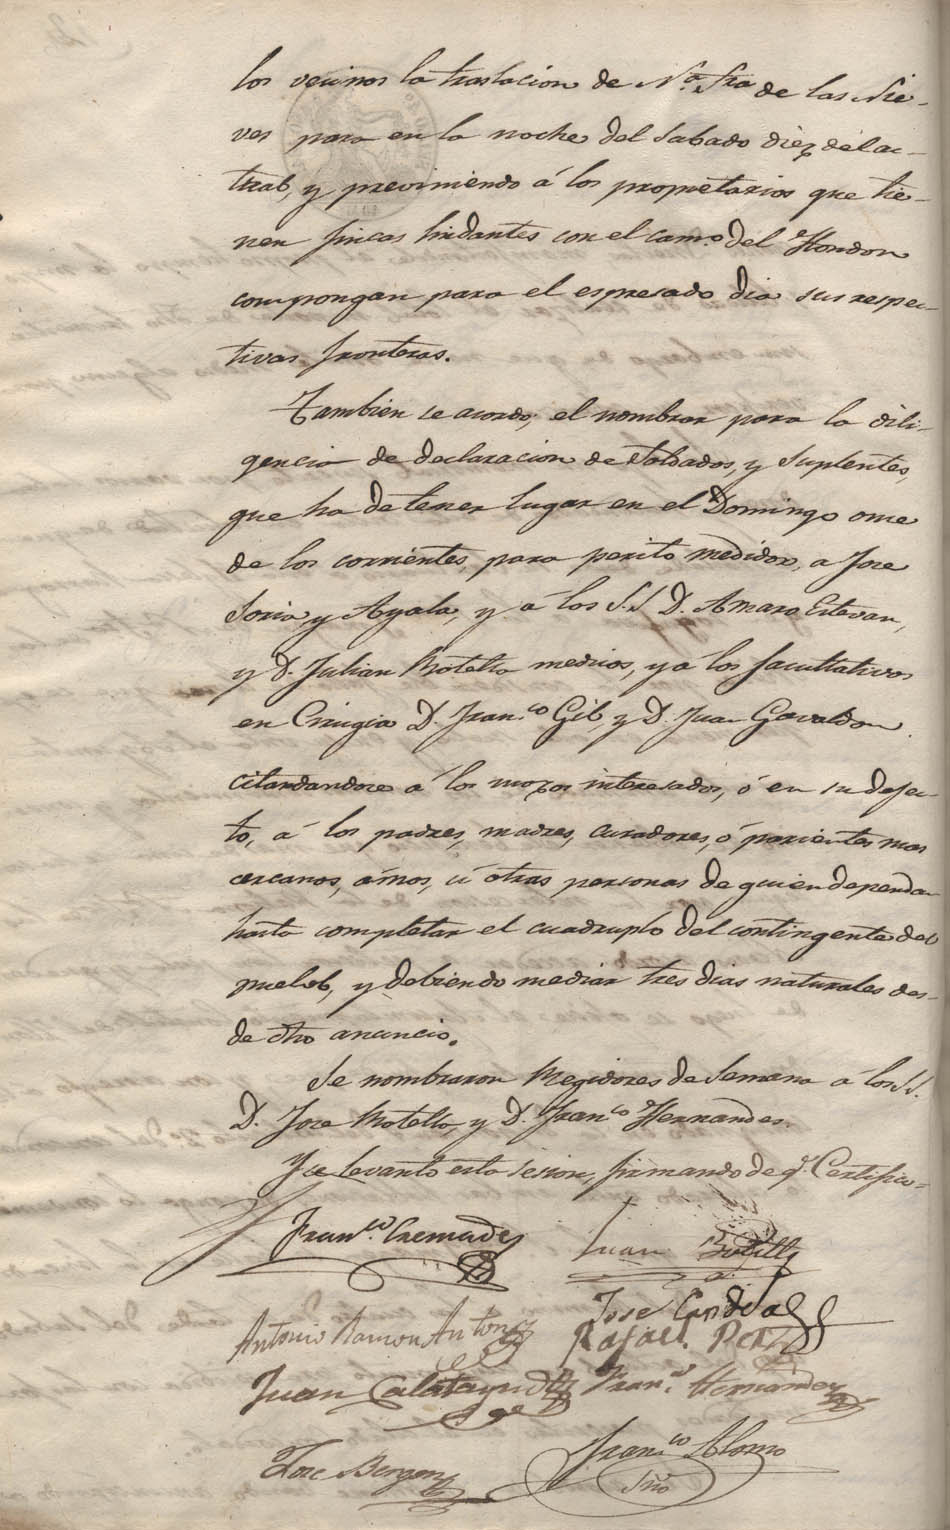 los vecinos la traslacion de N.ª Sra de las Nie-
ves para en la noche del Sabado diez del ac-
tual, y previniendo á los propietarios que tie-
nen fincas lindantes con el cam.º del Hondon
compongan para el espresado dia sus respec-
tivas fronteras.
Tambien se acordó, el nombrar para la dili-
gencia de declaracion de Soldados, y Suplentes,
que ha de tener lugar en el Domingo once
de los corrientes, para perito medidor, a Jose
Soria, y Ayala, y á los S.S D. Amaro Estevan,
y D. Julian Botella medicos, y a los facultativos
en Cirugia D. Fran.co Gil, y D. Juan Gavaldon
citandandose á los mozos interesados, ó en su defec-
to, á los padres, madres, curadores, ó parientes mas
cercanos, amos, ú otras personas de quien dependan
hasta completar el cuadruplo del contingente del
pueblo, y debiendo mediar tres dias naturales des-
de dho anuncio.
Se nombraron Regidores de Semana á los S.S.
D. Jose Botella, y D. Fran.co Hernandes.
Y se levantó esta sesion, firmando de q.e Certifico=
Fran.co Cremades Juan Botella
Jose Candela
Antonio Ramon Anton Rafael Perez
Juan Calatayud Fran.co Hernandez
Jose Bergen Fran.co Alonso
Srio